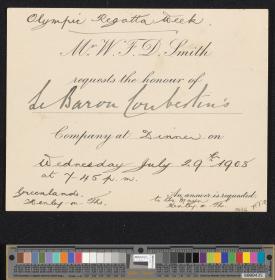 Olympic Regatta Week.
Mr W. F. D. Smith
requests the honour of
Le Baron Coubertin's
Company at Dinner on
Wednesday July 29th 1908
at 7.45 p.m.
Greenlands,
Henley-on-Ths.
An answer is requested
to the Manor
Henley-on-Th.